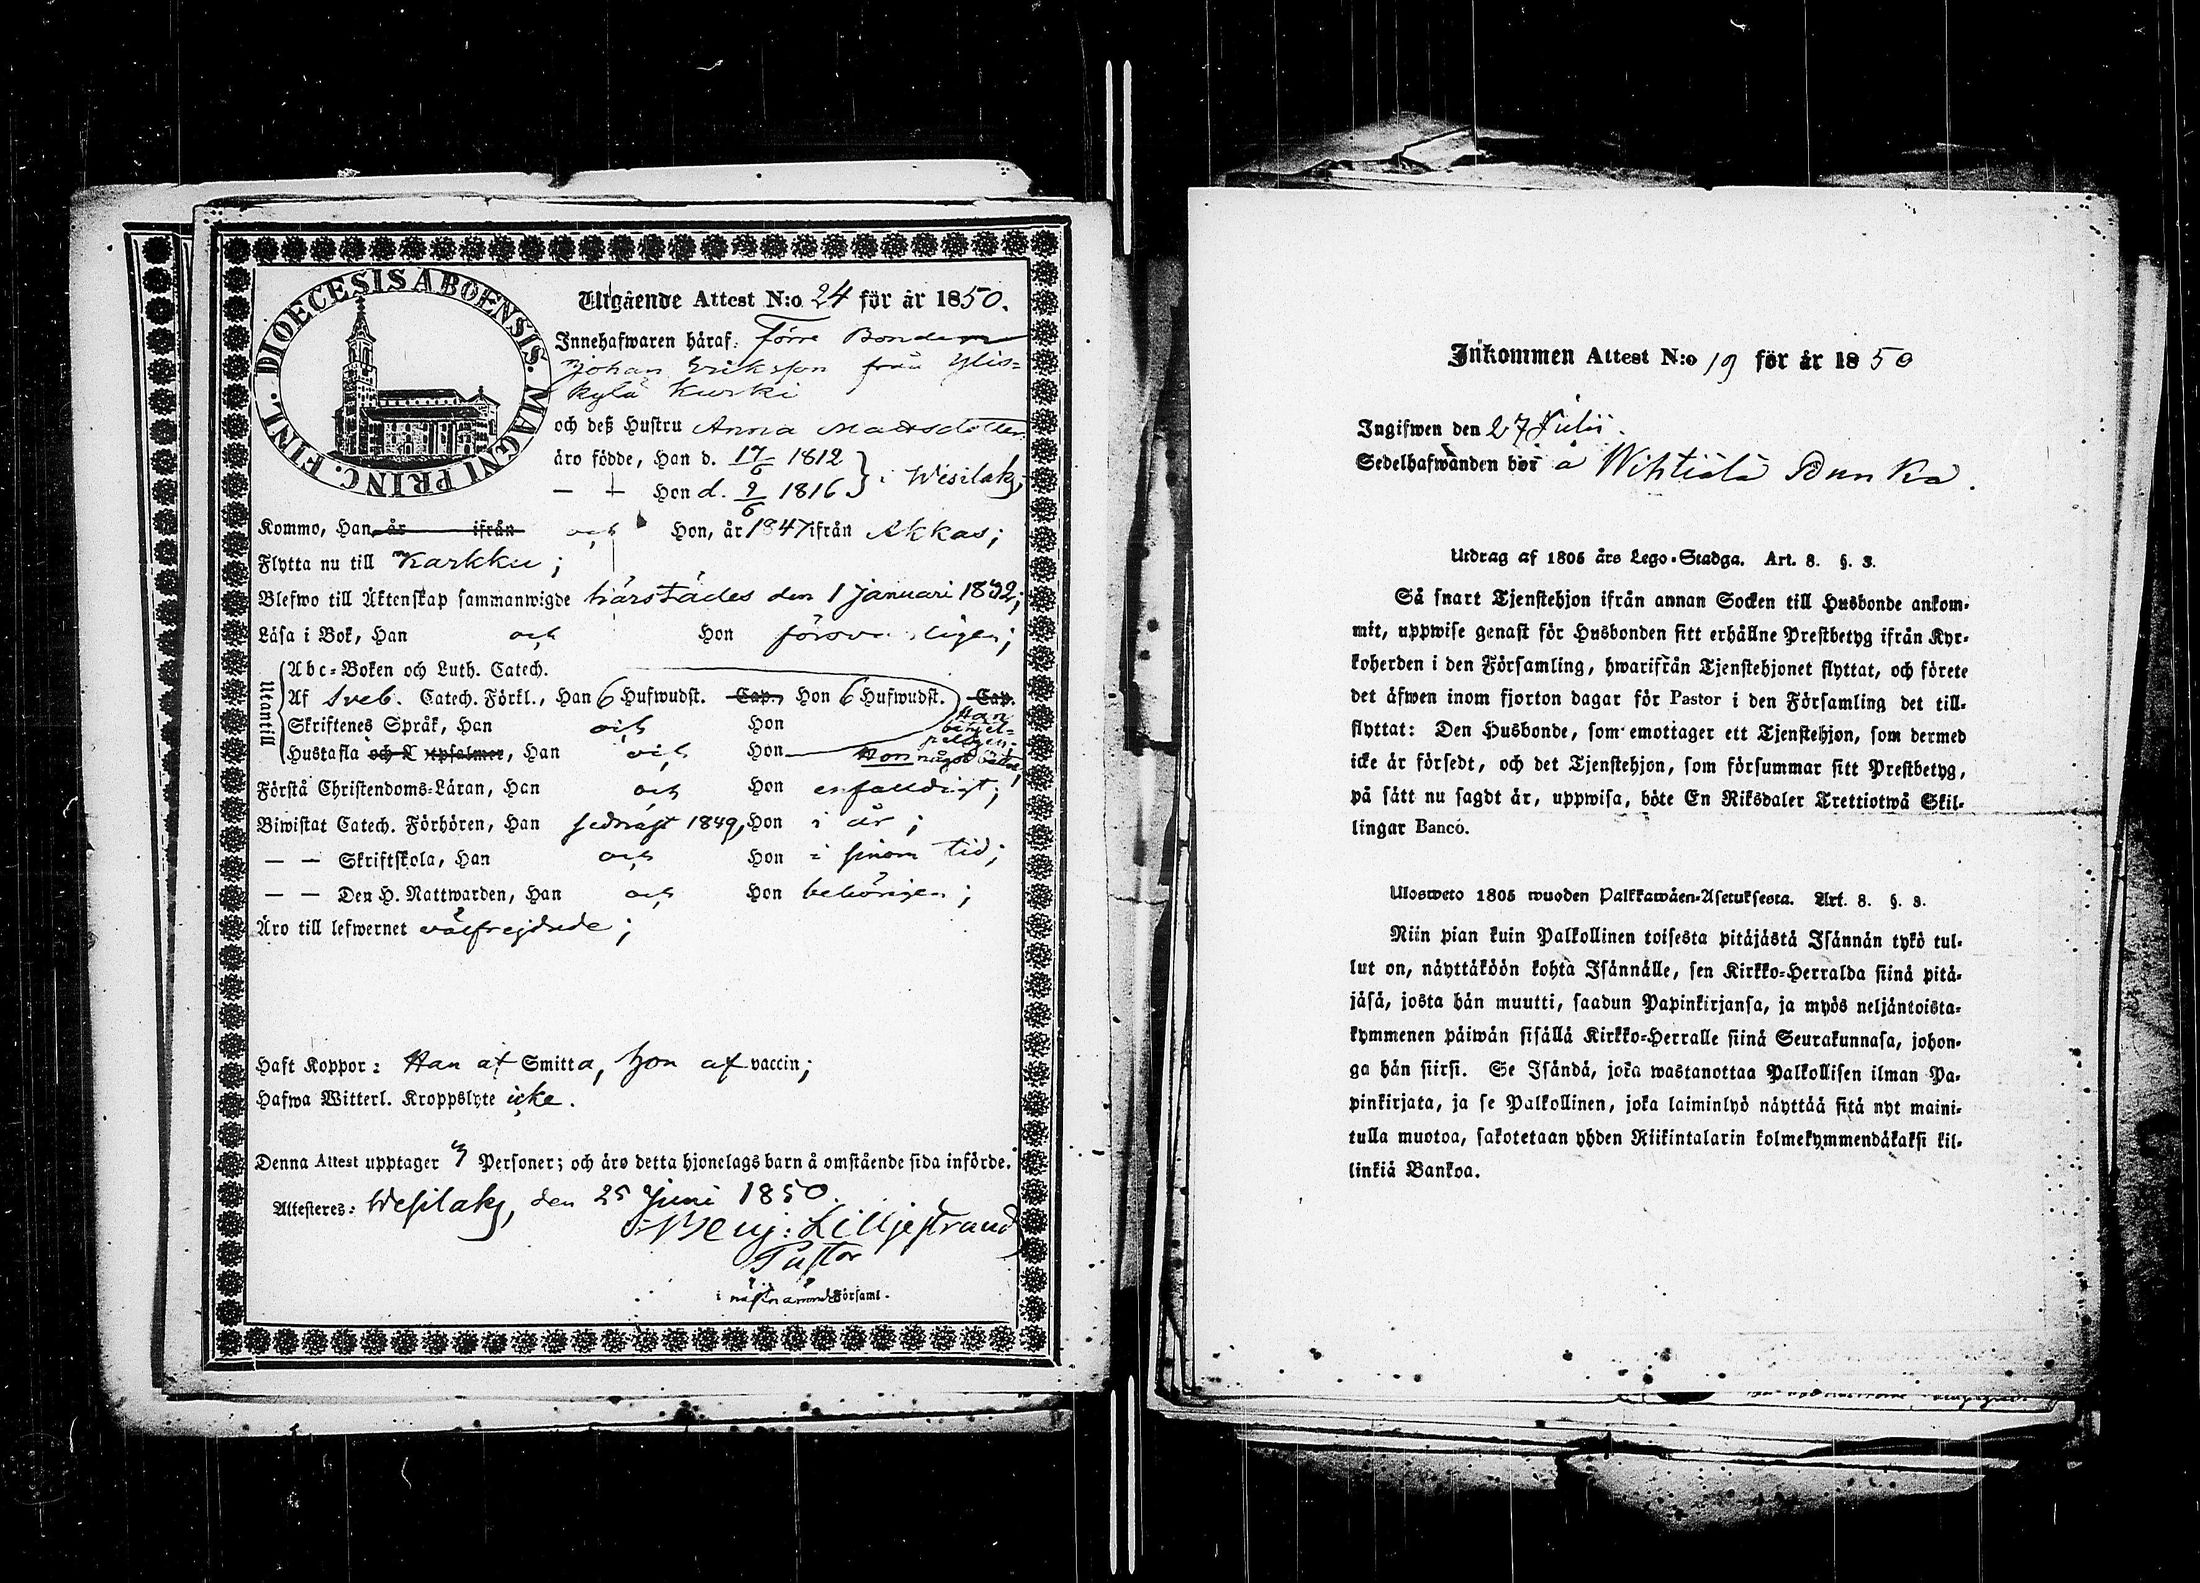 DIOECESIS ABOENSIS. MAGNI PRINC. FINL.
Utgående Attest N:o 24 för år 1850.
Innehafwaren häraf: förre Bonden
Johan Eriksson från Ylis-
kylä Kurki
och deß Hustru Anna Matsdotter
äro födde, Han d. 17/6 1812
— — Hon d. 9/6 1816 } i Wesilaks;
Kommo, Han är ifrån och Hon, år 1847 ifrån Akkas;
Flytta nu till Karkku;
Blefwo till Äktenskap sammanwigde härstädes den 1 Januari 1832;
Läsa i Bok, Han och Hon försvarligen;
Utantill
Abc-Boken och Luth. Catech.
Af Sveb. Catech. Förkl., Han 6 Hufwudst. Cap., Hon 6 Hufwudst. Cap.
Skriftenes Språk, Han och Hon
Han
Hustafla och Botpsalmer, Han och Hon
Hon något bättre;
Förstå Christendoms-Läran, Han och Hon enfaldigt;
Biwistat Catech. Förhören, Han sednast 1849, Hon i år;
— — Skriftskola, Han och Hon i sinom tid;
— — Den H. Nattwarden, Han och Hon behörigen;
Äro till lefwernet välfrejdade;
Haft Koppor: Han af Smitta, hon af vaccin;
Hafwa Witterl. Kroppslyte icke.
Denna Attest upptager Personer; och äro detta hjonelags barn å omstående sida införde.
Attesteres: Wesilaks, den 25 Juni 1850.
Benj: Lilljestrand
Pastor
i nästnämnde Församl.
Inkommen Attest N:o 19 för år 1850
Ingifwen den 27 Julii.
Sedelhafwanden bor å Wihtiälä Punka.
Utdrag af 1805 års Lego-Stadga. Art. 8. §. 3.
Så snart Tjenstehjon ifrån annan Socken till Husbonde ankom-
mit, uppwise genast för Husbonden sitt erhållne Prestbetyg ifrån Kyr-
koherden i den Församling, hwarifrån Tjenstehjonet flyttat, och förete
det äfwen inom fjorton dagar för Pastor i den Församling det till-
flyttat: Den Husbonde, som emottager ett Tjenstehjon, som dermed
icke är försedt, och det Tjenstehjon, som försummar sitt Prestbetyg,
på sätt nu sagdt är, uppwisa, böte En Riksdaler Trettiotwå Skil-
lingar Banco.
Ulosweto 1805 wuoden Palkkawäen-Asetuksesta. Art. 8. §. 3.
Niin pian kuin Palkollinen toisesta pitäjästä Isännän tykö tul-
lut on, näyttäköön kohta Isännälle, sen Kirkko-Herralda siinä pitä-
jäsä, josta hän muutti, saadun Papinkirjansa, ja myös neljäntoista-
kymmenen päiwän sisällä Kirkko-Herralle siinä Seurakunnasa, johon-
ga hän siirsi. Se Isändä, joka wastanottaa Palkollisen ilman Pa-
pinkirjata, ja se Palkollinen, joka laiminlyö näyttää sitä nyt maini-
tulla muotoa, sakotetaan yhden Riikintalarin kolmekymmendäkaksi kil-
linkiä Bankoa.